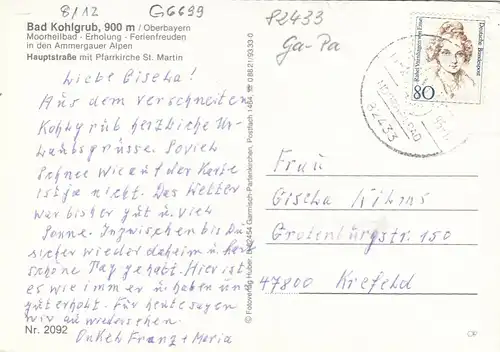 8/12 G6699
82433
Ga-Pa
Bad Kohlgrub, 900 m / Oberbayern
Moorheilbad - Erholung - Ferienfreuden
in den Ammergauer Alpen
Hauptstraße mit Pfarrkirche St. Martin
Liebe Gisela!
Aus dem verschneiten
Kohlgrub herzliche Ur-
laubsgrüsse. Soviel
Schnee wie auf der Karte
ist ja nicht. Das Wetter
war bisher gut u. viel
Sonne. Inzwischen bis Du
sicher wieder daheim u. hast
schöne Tag gehabt. Hier ist
es wie immer u. haben uns
gut erholt. Für heute sagen
wir auf wiedersehen.
Onkel Franz + Maria
Nr. 2092
© Fotoverlag Huber, D-82454 Garmisch-Partenkirchen, Postfach 1454, ☎ 0 88 21/93 33 0
Deutsche Bundespost
Rahel Varnhagen von Ense
80
82433
Frau
Gisela
Grotenburgstr. 150
47800 Krefeld